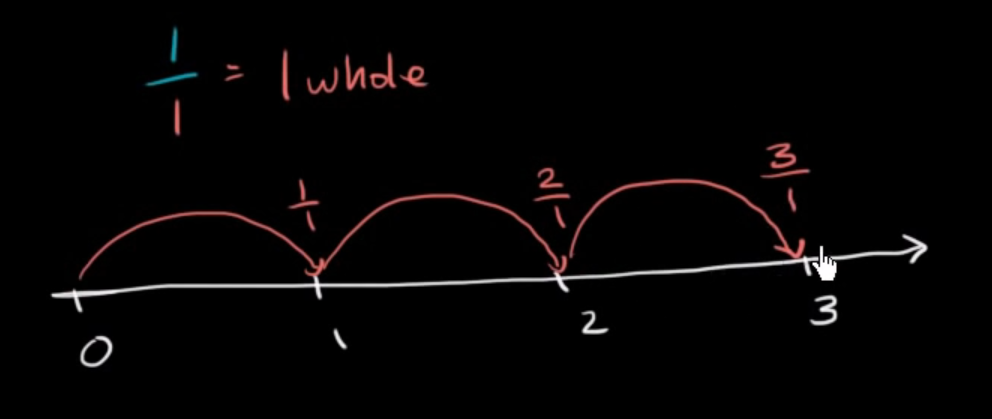 1/1 = 1 whole
1/1 2/1 3/1
0 1 2 3